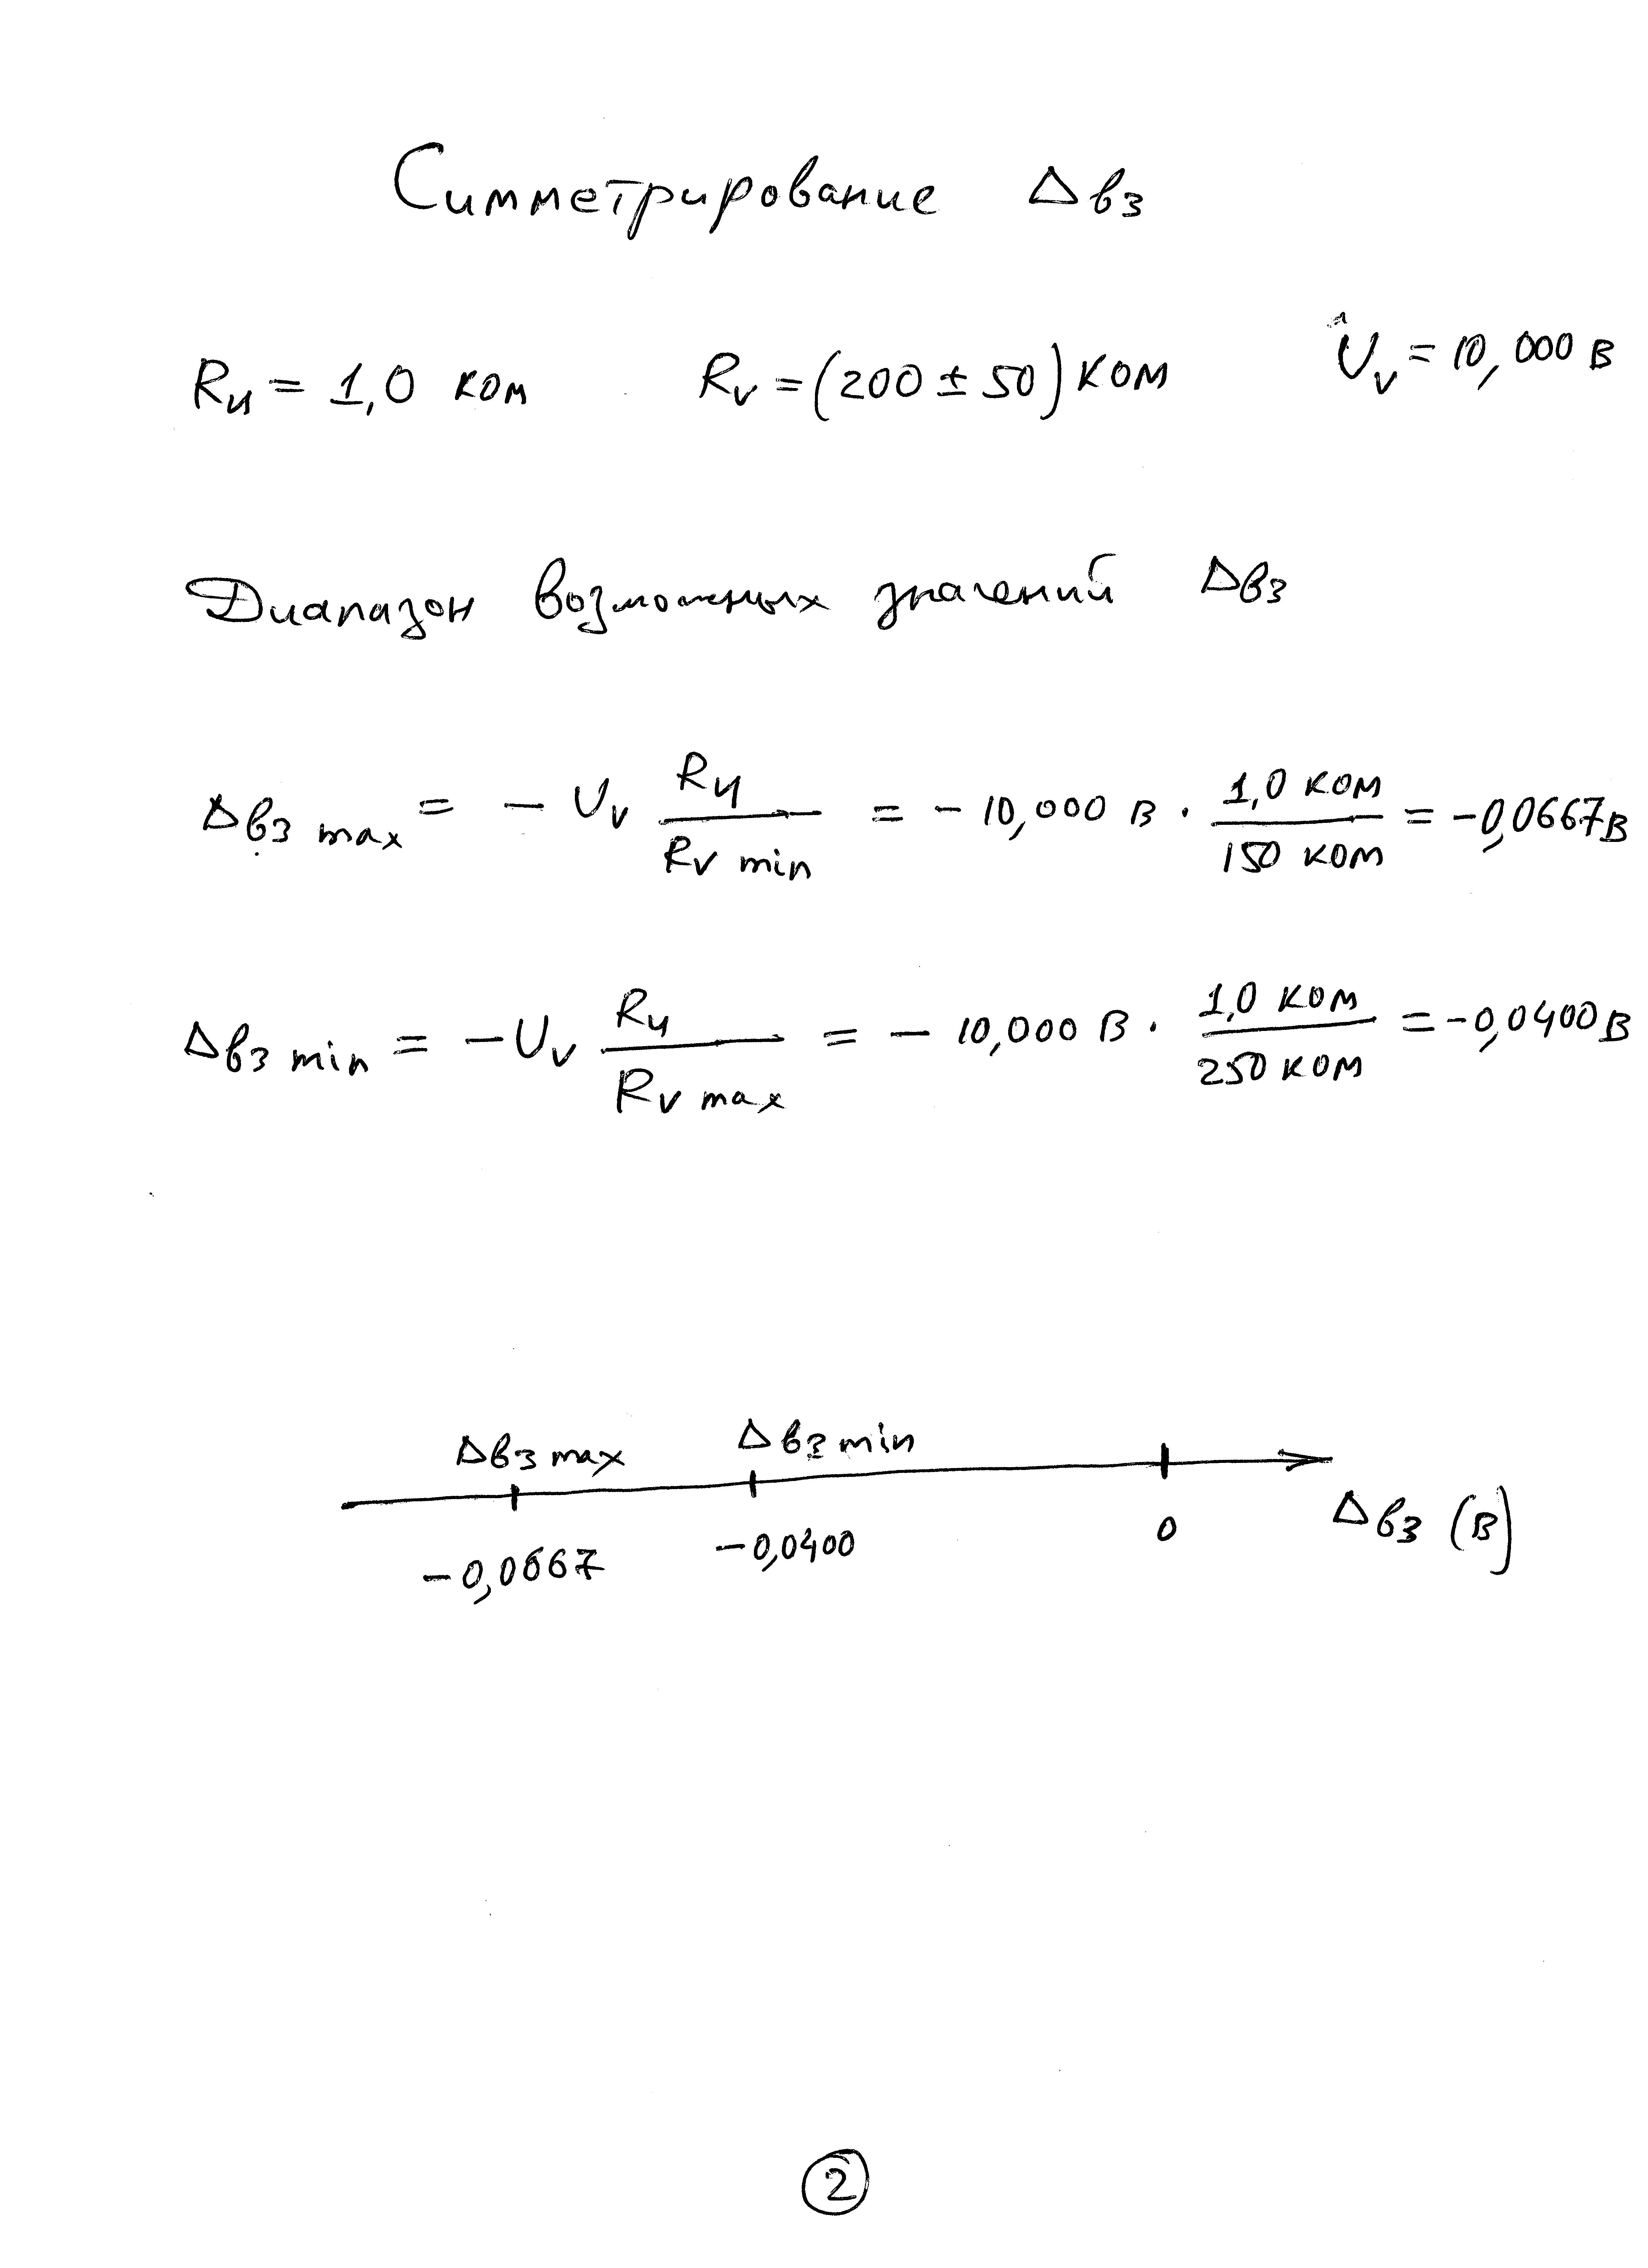 Симметрирование Δвз
Rи = 1,0 кОм Rv = (200 ± 50) кОм Uv = 10,000 В
Диапазон возможных значений Δвз
Δвз max = − Uv Rи / Rv min = − 10,000 В · 1,0 кОм / 150 кОм = −0,0667 В
Δвз min = − Uv Rи / Rv max = − 10,000 В · 1,0 кОм / 250 кОм = −0,0400 В
Δвз max Δвз min
−0,0667 −0,0400 0 Δвз (В)
2